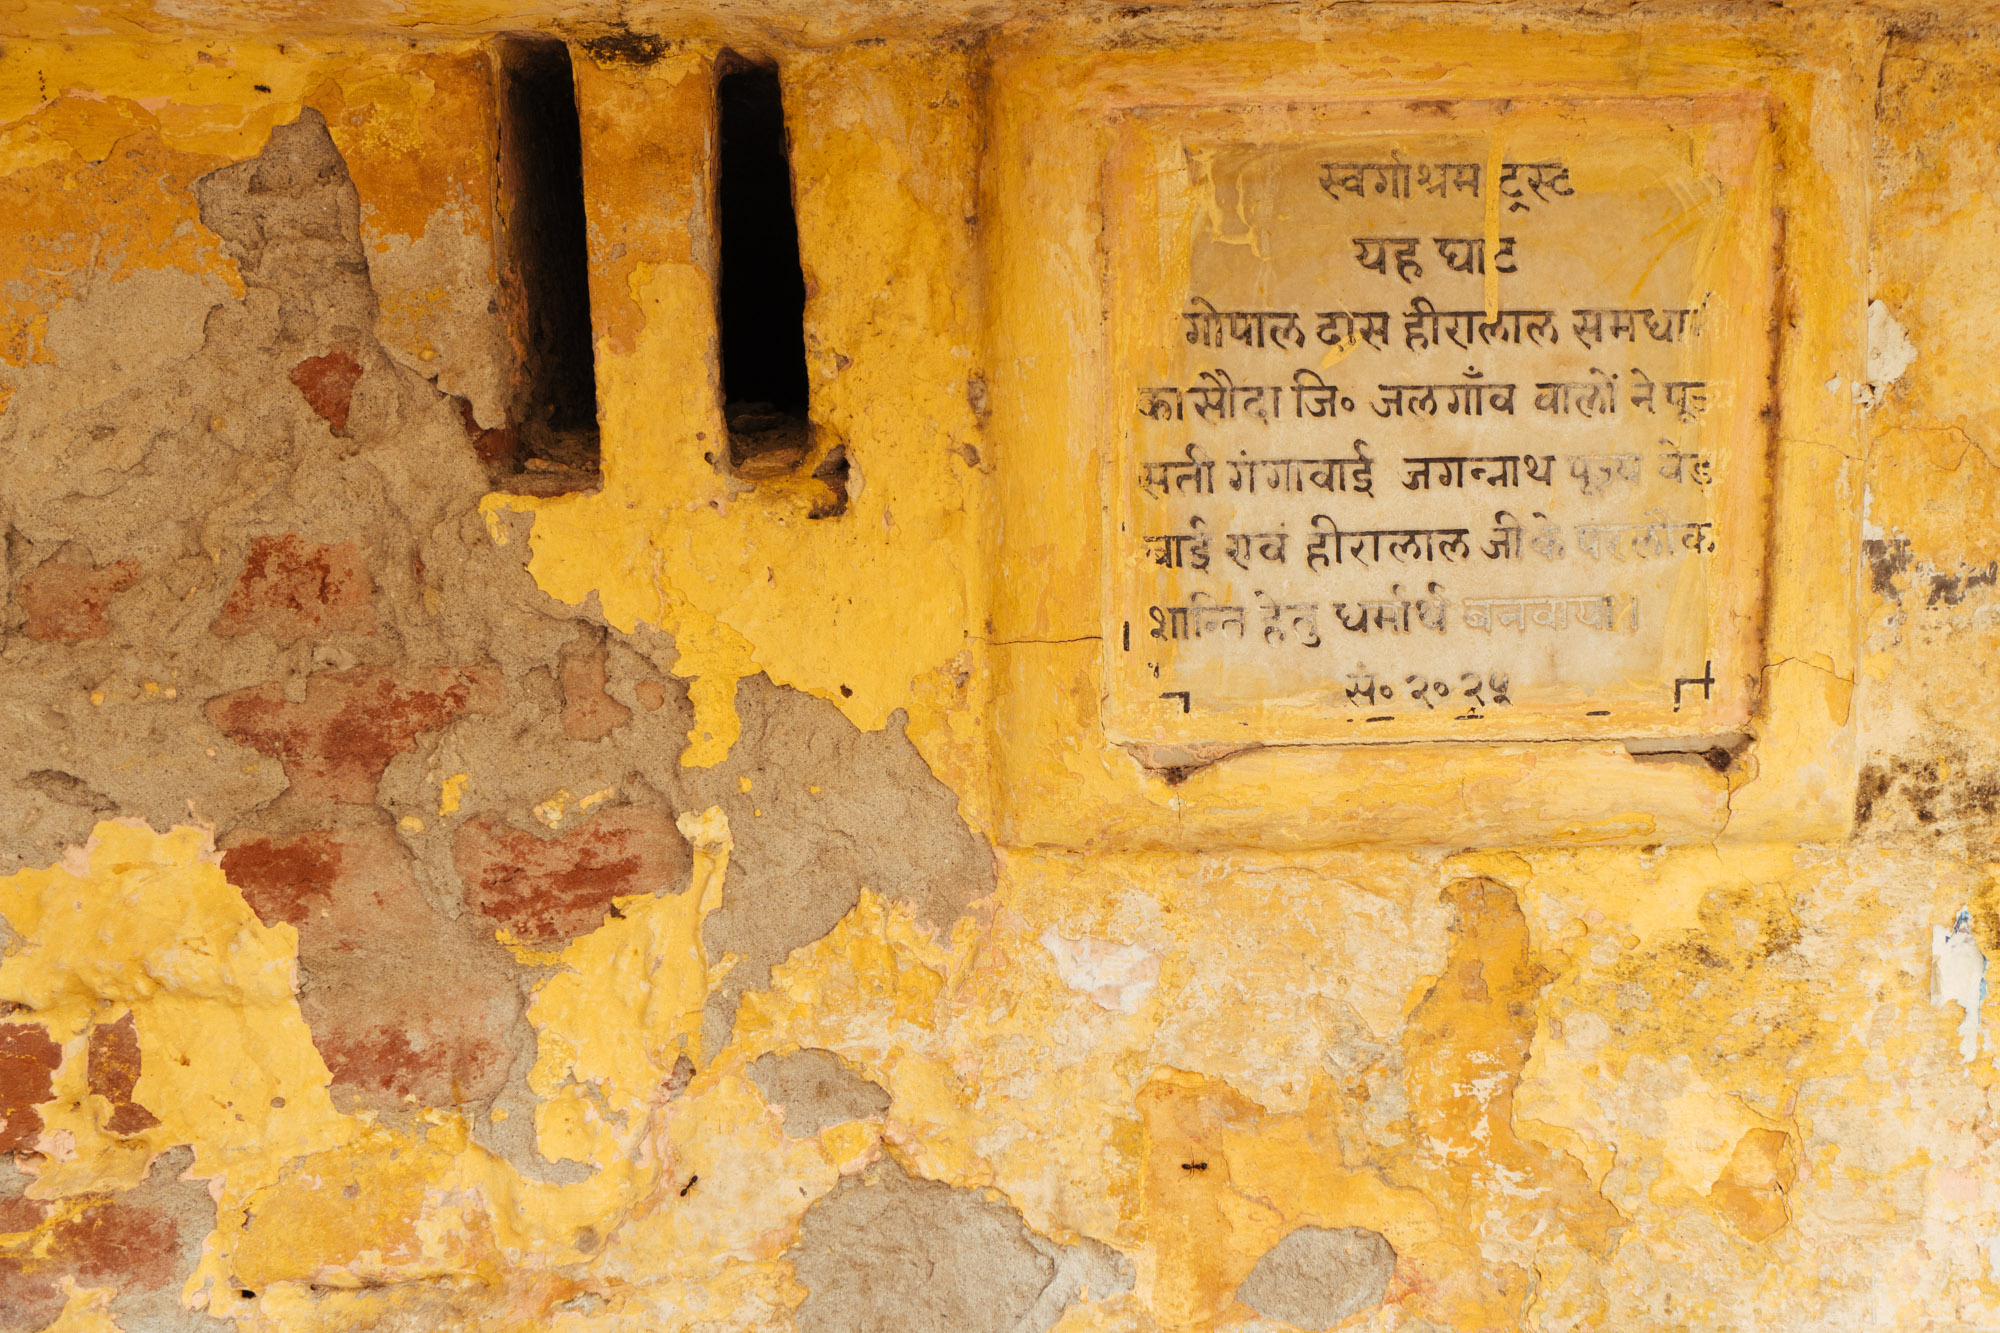 स्वर्गाश्रम ट्रस्ट
यह घाट
गोपाल दास हीरालाल समधा
कासौदा जि॰ जलगाँव वालों ने
सती गंगावाई जगन्नाथ पूज्य
बाई एवं हीरालाल जी के परलोक
शान्ति हेतु धर्मार्थ बनवाया।
सं॰ २०२५